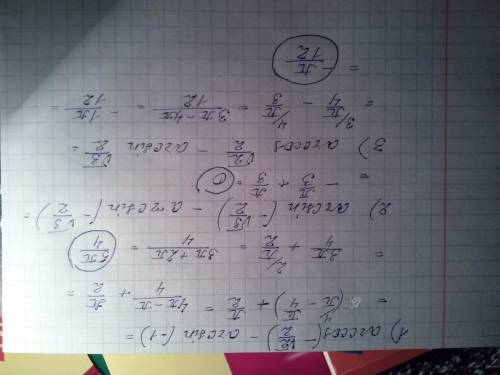 1) arccos(-√2/2) - arcsin(-1) =
= (π - π/4) + π/2 = (4π - π)/4 + π/2 =
= 3π/4 + π/2 = (3π + 2π)/4 = 5π/4
2) arcsin(-√3/2) - arcsin(-√3/2) =
= -π/3 + π/3 = 0
3) arccos √2/2 - arcsin √3/2 =
= π/4 - π/3 = (3π - 4π)/12 = -1π/12 =
= -π/12